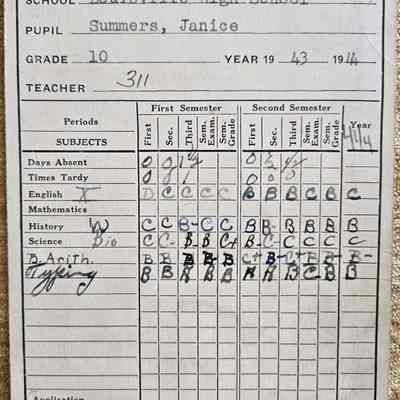 SCHOOL Louisville High School
PUPIL Summers, Janice
GRADE 10 YEAR 19 43 19 44
TEACHER 311
First Semester Second Semester
Periods First Sec. Third Sem. Exam. Sem. Grade First Sec. Third Sem. Exam. Sem. Grade Year
SUBJECTS
Days Absent 0 0 0
Times Tardy 0 0 0 0
English X D C C C C B B B C B C
Mathematics
History W C C B- C C B B- B B B B
Science Bio C C- B B C+ B C C C C C
B. Arith. B B B B- B C+ B- C+ B B- B-
Typing B B A B B A A B C B B
Application